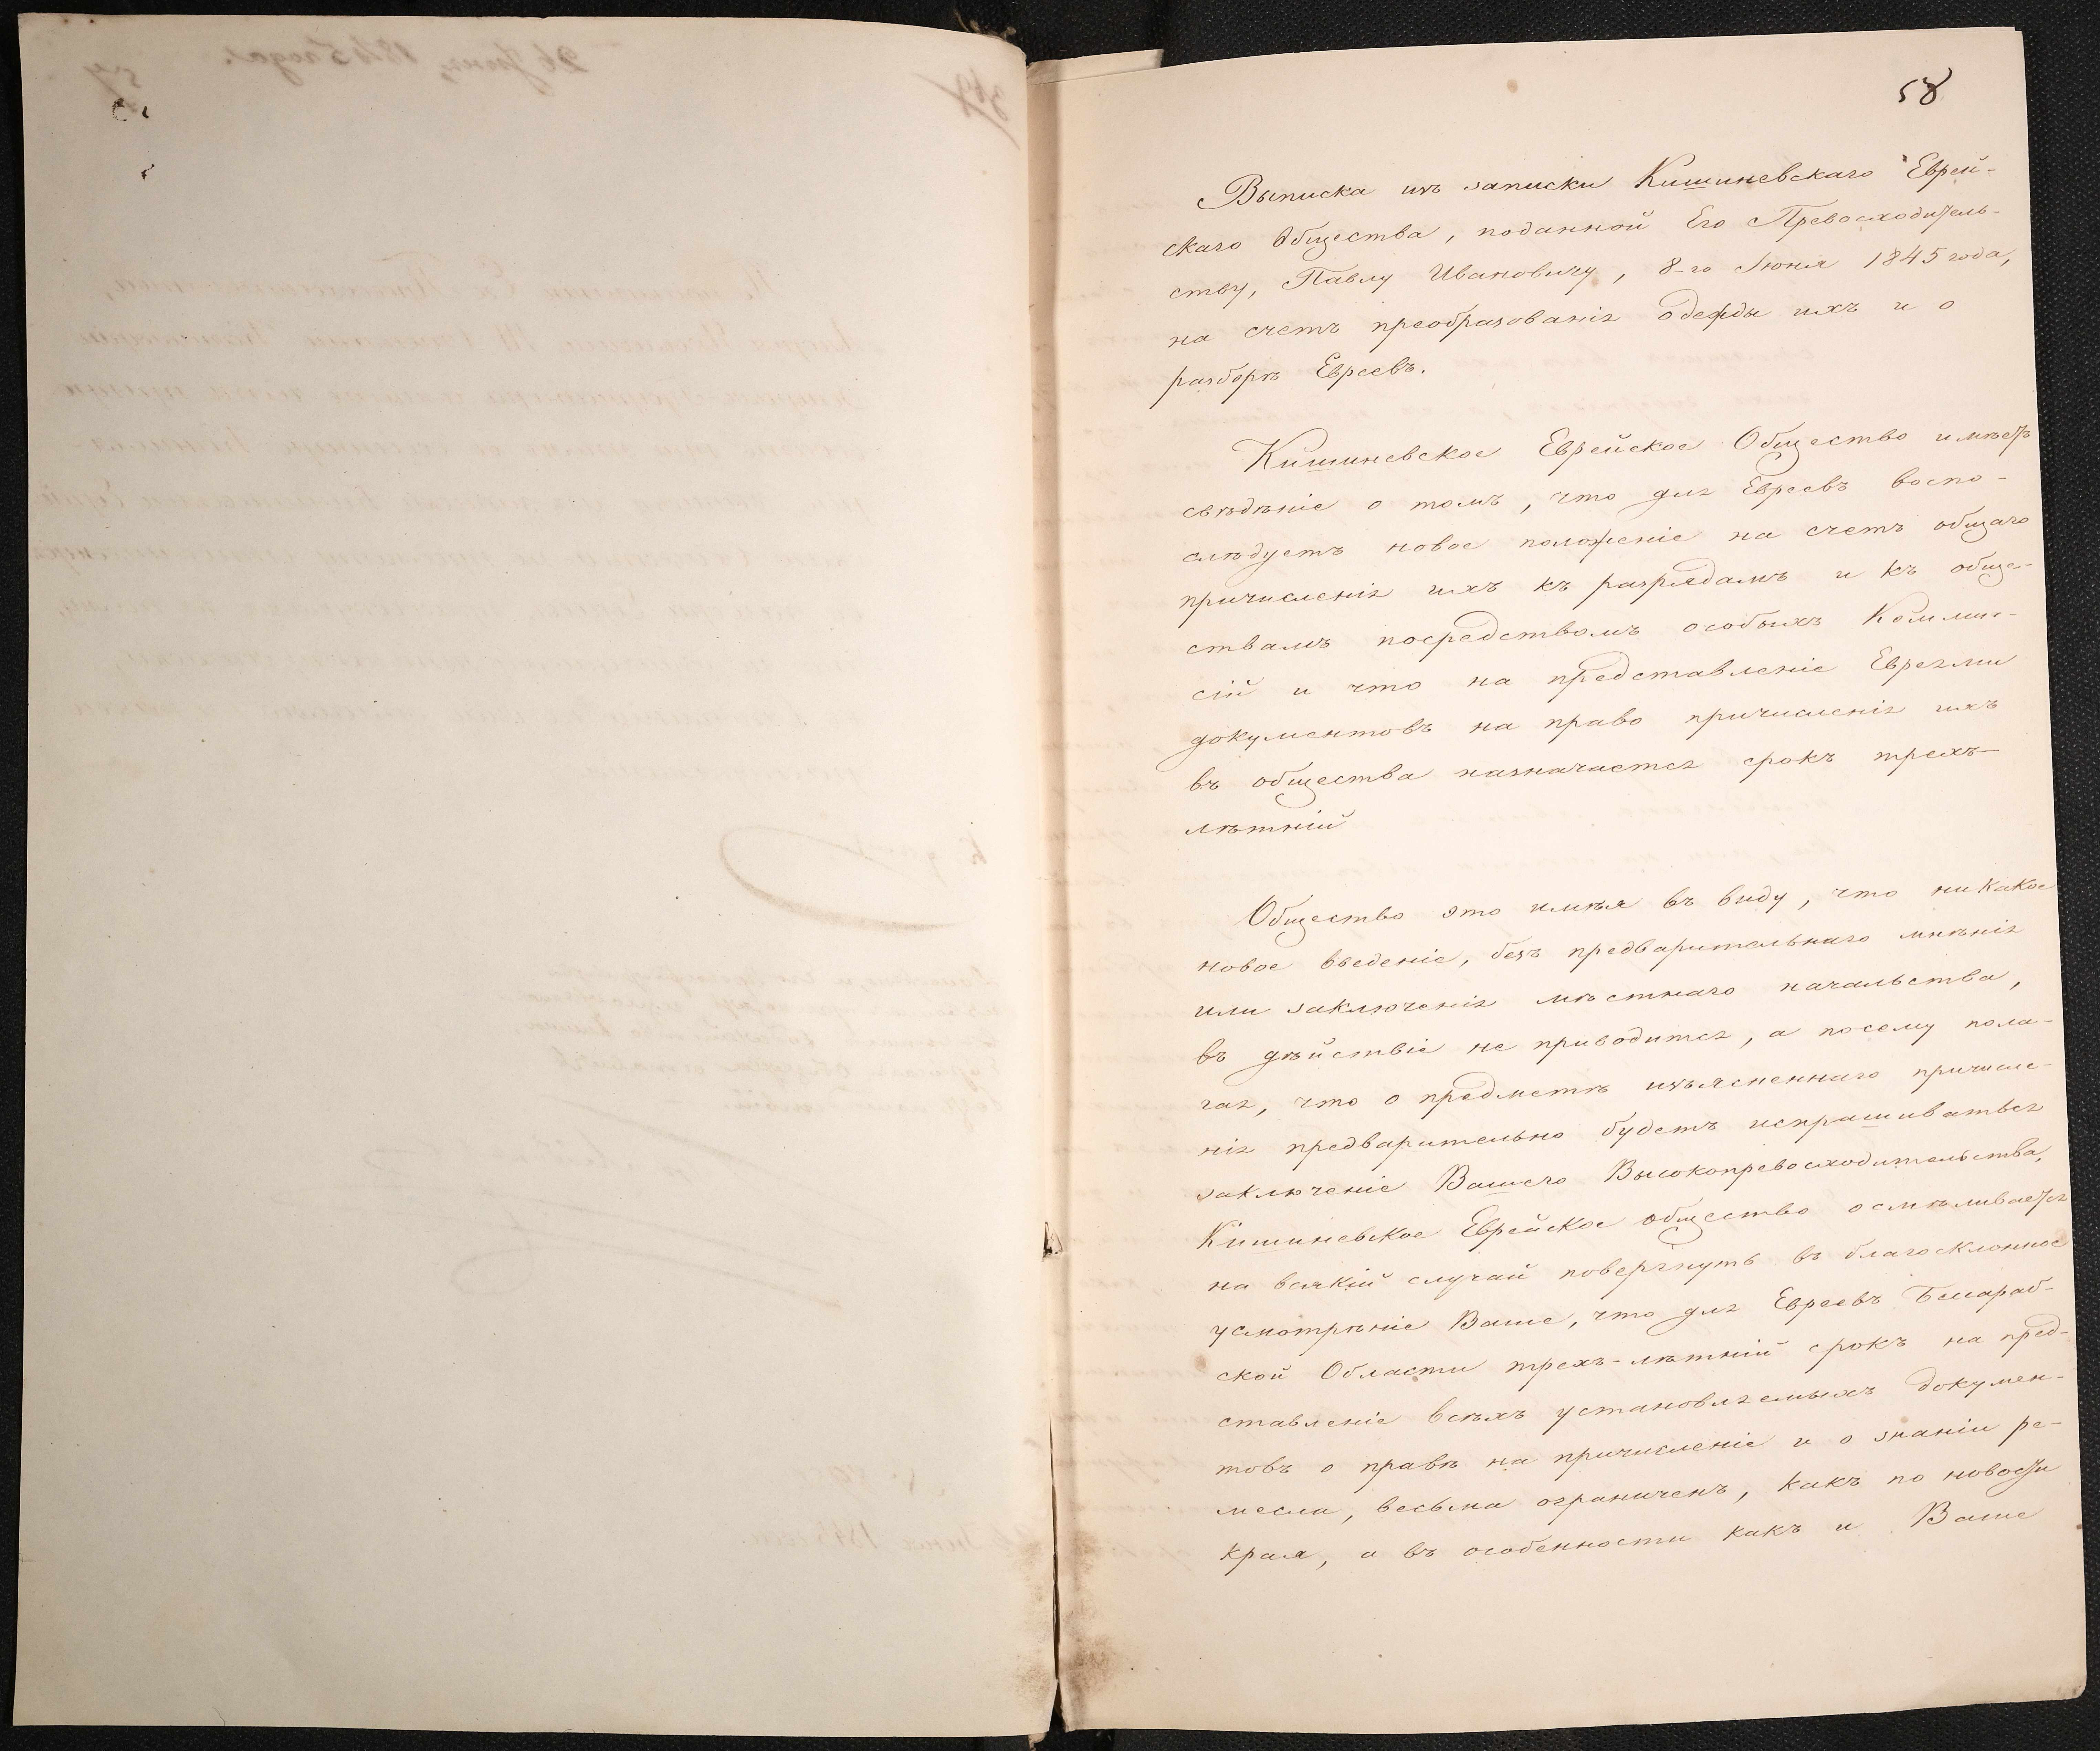 58
Выписка изъ записки Кишиневскаго Еврей-
скаго Общества, поданной Его Превосходитель-
ству, Павлу Ивановичу, 8-го Июня 1845 года,
на счетъ преобразованія одежды ихъ и о
разборѣ Евреевъ.
Кишиневское Еврейское Общество имѣетъ
свѣдѣніе о томъ, что для Евреевъ воспо-
слѣдуетъ новое положеніе на счетъ общаго
причисленія ихъ къ разрядамъ и къ обще-
ствамъ посредствомъ особыхъ Коммис-
сій и что на представленіе Евреями
документовъ на право причисленія ихъ
въ общества назначается срокъ трехъ-
лѣтній
Общество это имѣя въ виду, что ни какое
новое введеніе, безъ предварительнаго мнѣнія
или заключенія мѣстнаго начальства,
въ дѣйствіе не приводится, а посему пола-
гая, что о предметѣ изъясненнаго причисле-
нія предварительно будетъ испрашиваться
заключеніе Вашего Высокопревосходительства,
Кишиневское Еврейское общество осмѣливается
на всякій случай повергнуть въ благосклонное
усмотрѣніе Ваше, что для Евреевъ Бессараб-
ской Области трехъ-лѣтній срокъ на пред-
ставленіе всѣхъ установляемыхъ докумен-
товъ о правѣ на причисленіе и о знаніи ре-
месла, весьма ограниченъ, какъ по новости
края, а въ особенности какъ и Ваше